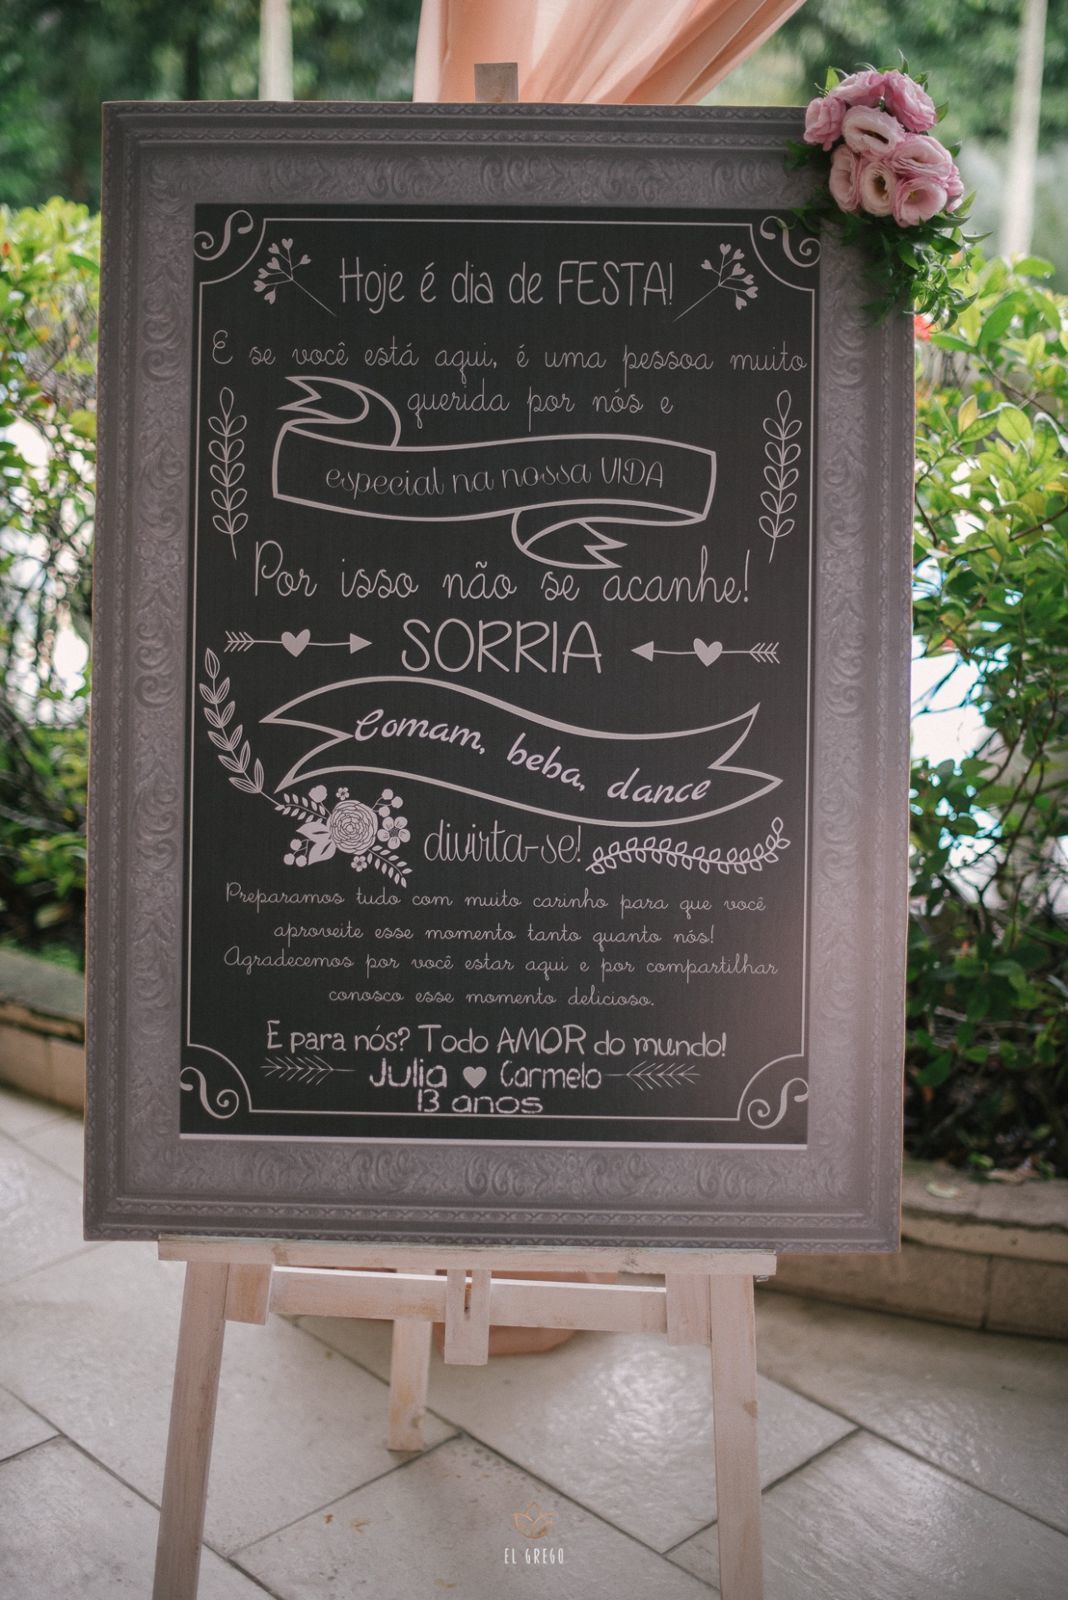 Hoje é dia de FESTA!
E se você está aqui, é uma pessoa muito
querida por nós e
especial na nossa VIDA
Por isso não se acanhe!
SORRIA
Comam, beba, dance
divirta-se!
Preparamos tudo com muito carinho para que você
aproveite esse momento tanto quanto nós!
Agradecemos por você estar aqui e por compartilhar
conosco esse momento delicioso.
E para nós? Todo AMOR do mundo!
Julia ♥ Carmelo
13 anos
EL GREGO